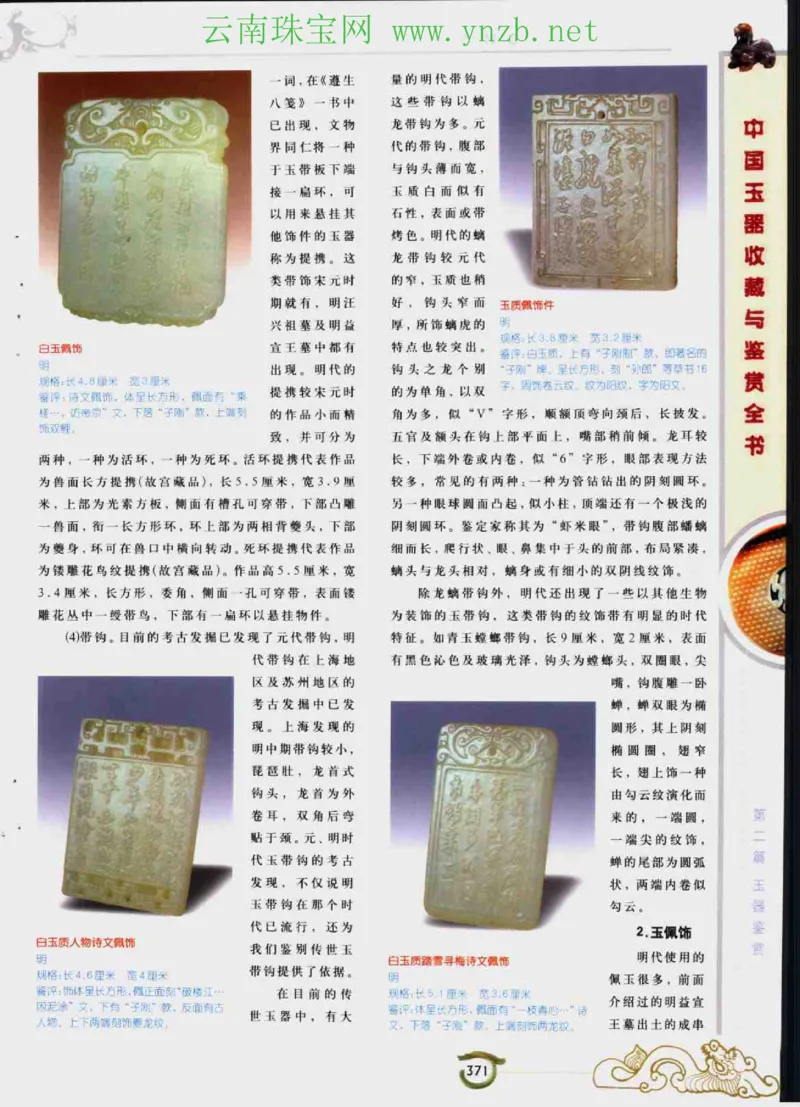 云南珠宝网 www.ynzb.net
一词,在《遵生
八笺》一书中
已出现，文物
界同仁将一种
于玉带板下端
接一扁环，可
以用来悬挂其
他饰件的玉器
称为提携。这
类带饰宋元时
期就有，明汪
兴祖墓及明益
宣王墓中都有
出现。明代的
提携较宋元时
的作品小而精
致，并可分为
白玉佩饰
明
规格:长4.8厘米　宽3厘米
鉴评:诗文佩饰。体呈长方形，佩面有“乘
槎…，访帝京”文，下落“子刚”款，上端刻
饰双鲤。
两种，一种为活环，一种为死环。活环提携代表作品
为兽面长方提携(故宫藏品)，长5.5厘米，宽3.9厘
米，上部为光素方板，侧面有槽孔可穿带，下部凸雕
一兽面，衔一长方形环，环上部为两相背夔头，下部
为夔身，环可在兽口中横向转动。死环提携代表作品
为镂雕花鸟纹提携(故宫藏品)。作品高5.5厘米，宽
3.4厘米，长方形，委角，侧面一孔可穿带，表面镂
雕花丛中一绶带鸟，下部有一扁环以悬挂物件。
⑷带钩。目前的考古发掘已发现了元代带钩，明
代带钩在上海地
区及苏州地区的
考古发掘中已发
现。上海发现的
明中期带钩较小，
琵琶肚，龙首式
钩头，龙首为外
卷耳，双角后弯
贴于颈。元、明时
代玉带钩的考古
发现，不仅说明
玉带钩在那个时
代已流行，还为
我们鉴别传世玉
带钩提供了依据。
在目前的传
世玉器中，有大
白玉质人物诗文佩饰
明
规格:长4.6厘米　宽4厘米
鉴评:饰体呈长方形，佩正面刻“破楼江…
因泥涂”文，下有“子刚”款，反面有古
人物。上下两端刻饰夔龙纹。
量的明代带钩，
这些带钩以螭
龙带钩为多。元
代的带钩，腹部
与钩头薄而宽，
玉质白而似有
石性，表面或带
烤色。明代的螭
龙带钩较元代
的窄，玉质也稍
好，钩头窄而
厚，所饰螭虎的
特点也较突出。
钩头之龙个别
的为单角，以双
玉质佩饰件
明
规格:长3.8厘米　宽3.2厘米
鉴评:白玉质，上有“子刚制”款，即著名的
“子刚”牌。呈长方形，刻“孙郎”等草书16
字，周饰卷云纹。纹为阳纹，字为阳文。
角为多，似“V”字形，顺额顶弯向颈后，长披发。
五官及额头在钩上部平面上，嘴部稍前倾。龙耳较
长，下端外卷或内卷，似“6”字形，眼部表现方法
较多，常见的有两种:一种为管钻钻出的阴刻圆环。
另一种眼球圆而凸起,似小柱,顶端还有一个极浅的
阴刻圆环。鉴定家称其为“虾米眼”，带钩腹部蟠螭
细而长，爬行状、眼、鼻集中于头的前部，布局紧凑，
螭头与龙头相对，螭身或有细小的双阴线纹饰。
除龙螭带钩外，明代还出现了一些以其他生物
为装饰的玉带钩，这类带钩的纹饰带有明显的时代
特征。如青玉螳螂带钩，长9厘米，宽2厘米，表面
有黑色沁色及玻璃光泽，钩头为螳螂头，双圈眼，尖
嘴，钩腹雕一卧
蝉，蝉双眼为椭
圆形，其上阴刻
椭圆圈，翅窄
长，翅上饰一种
由勾云纹演化而
来的，一端圆，
一端尖的纹饰，
蝉的尾部为圆弧
状，两端内卷似
勾云。
2.玉佩饰
明代使用的
佩玉很多，前面
介绍过的明益宣
王墓出土的成串
白玉质踏雪寻梅诗文佩饰
明
规格:长5.1厘米　宽3.6厘米
鉴评:体呈长方形，佩面有“一枝青心…”诗
文，下落“子刚”款，上端刻饰两龙纹。
中国玉器收藏与鉴赏全书
第二篇 玉器鉴赏
371